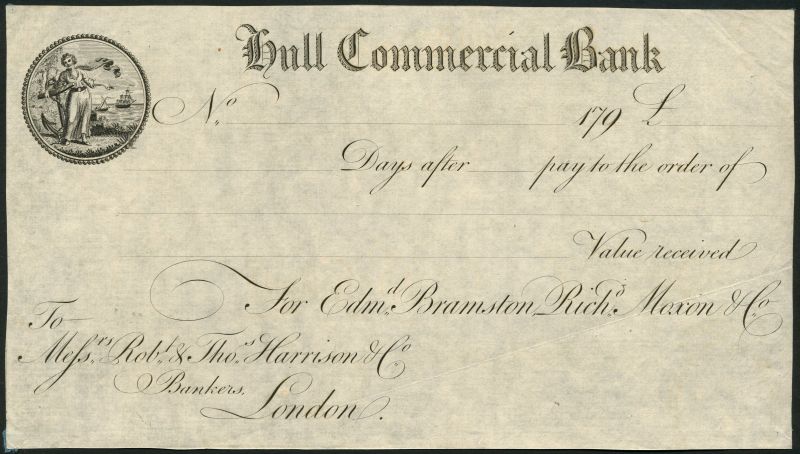 Hull Commercial Bank
No. 179 £
Days after pay to the order of
Value received
For Edmd. Bramston, Richd. Moxon & Co.
To
Messrs. Robt. & Thos. Harrison & Co.
Bankers,
London.